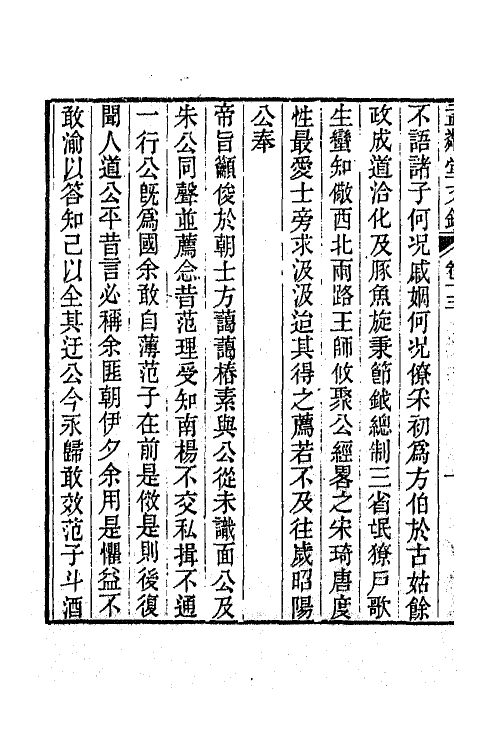 不語諸子何況戚姻何況僚寀初為方伯於古姑餘
政成道洽化及豚魚旋秉節鉞總制三省氓獠戶歌
生蠻知儆西北兩路王師攸聚公經畧之宋琦唐度
性最愛士旁求汲汲迨其得之薦若不及往歲昭陽
公奉
帝旨籲俊於朝士方藹藹樁素與公從未識面公及
朱公同聲並薦念昔范理受知南楊不交私揖不通
一行公旣爲國余敢自薄范子在前是傚是則後復
聞人道公平昔言必稱余匪朝伊夕余用是懼益不
敢渝以答知己以全其迂公今永歸敢效范子斗酒
卷十三